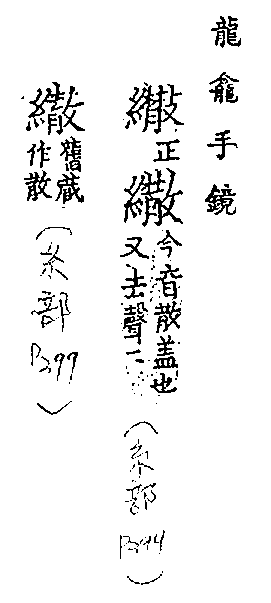 龍龕手鏡
𦆯正繖今音散盖也又去聲二
(糸部P394)
繖舊蔵作散
(糸部P399)